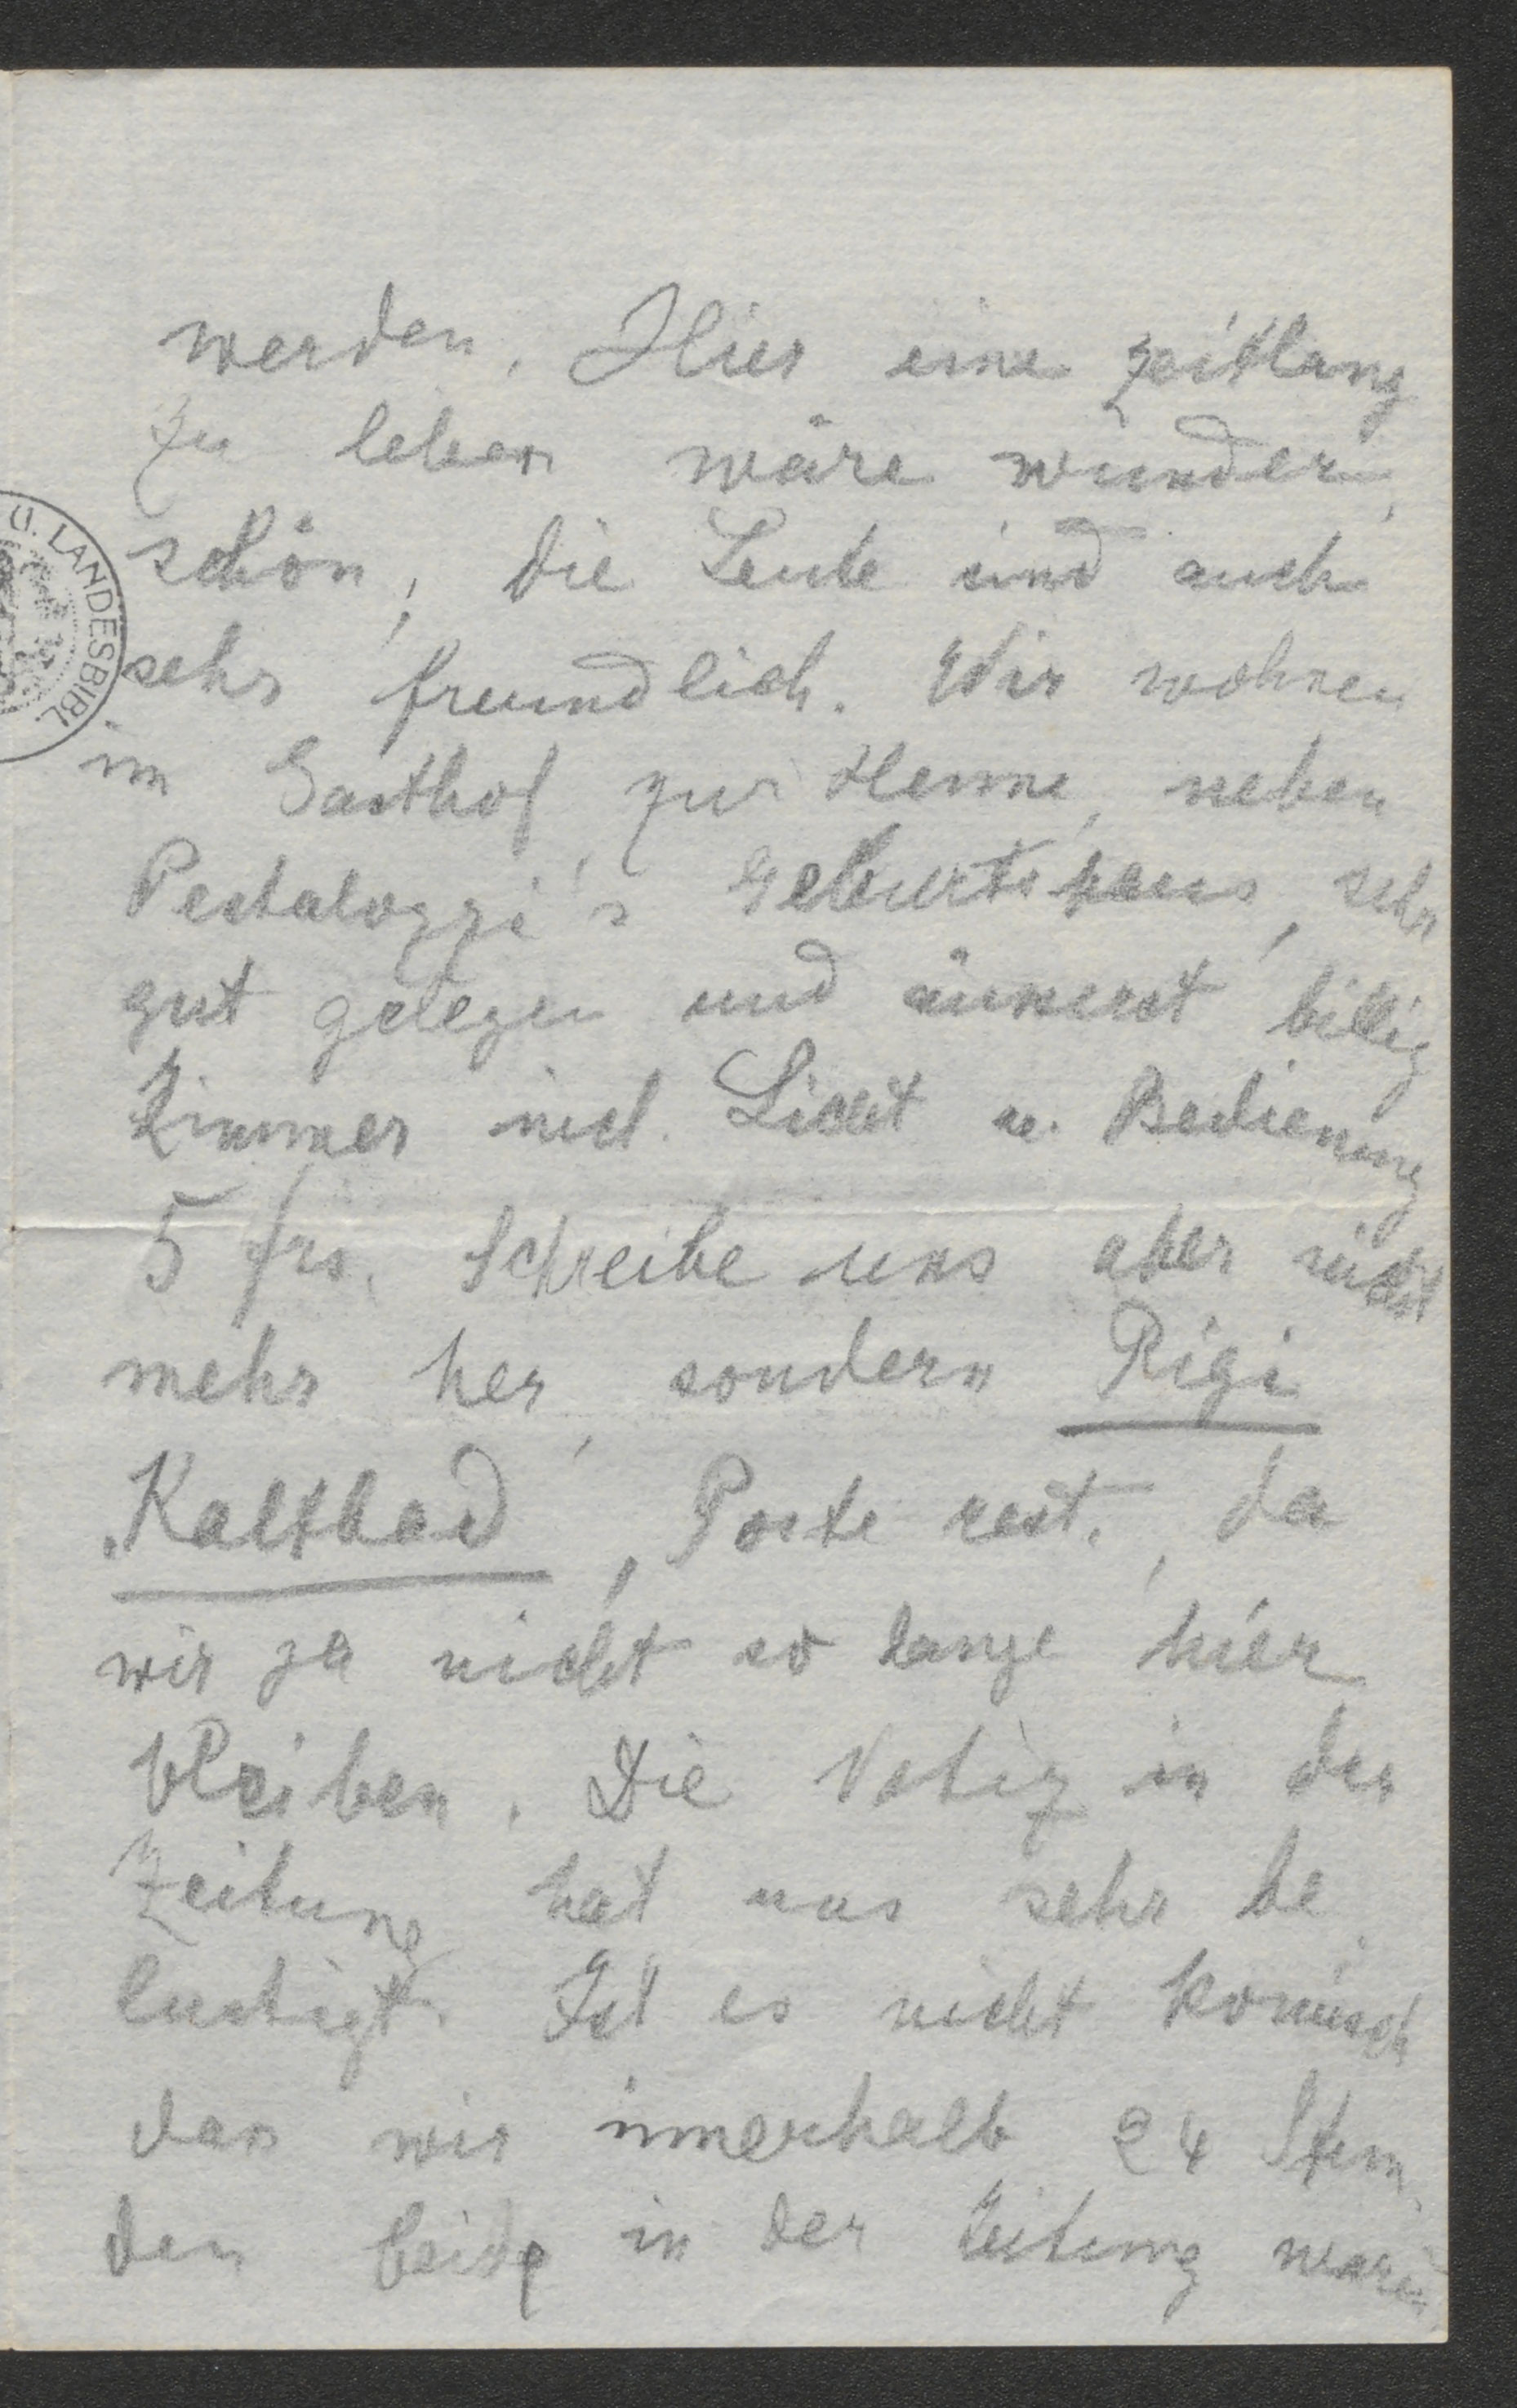 werden. Hier eine zeitlang
zu leben wäre wunder
schön, die Leute sind auch
sehr freundlich. Wir wohnen
im Gasthof zur Henne, neben
Pestalozzi's Geburtshaus, sehr
gut gelegen und äusserst billig
Zimmer incl. Licht u. Bedienung
5 frs. Schreibe uns aber nicht
mehr her, sondern Rigi
Kaltbad, Poste rest., da
wir ja nicht so lange hier
bleiben. Die Notiz in der
Zeitung hat uns sehr be
lustigt. Ist es nicht komisch
dass wir innerhalb 24 Stun-
den beide in der Zeitung waren
U. LANDESBIBL.